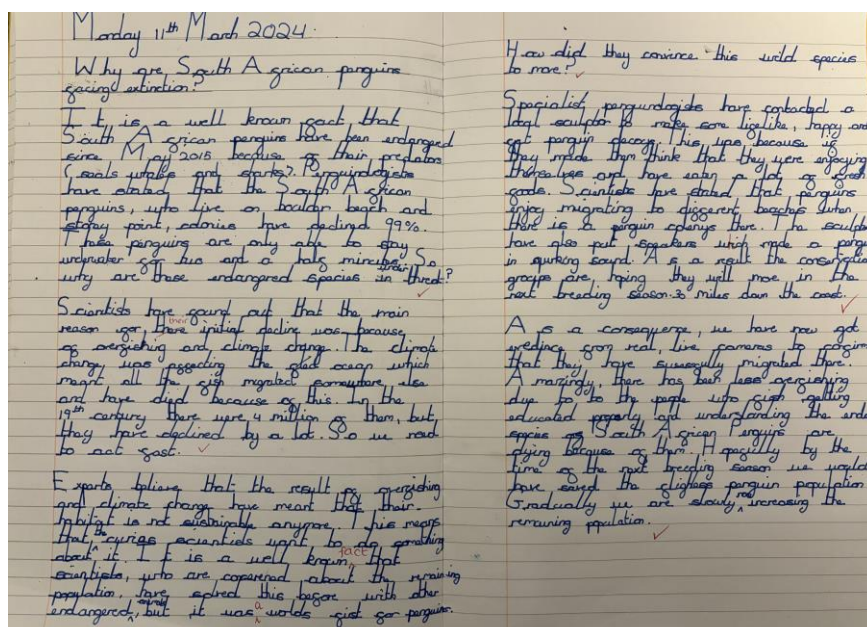 Monday 11th March 2024
Why are South African penguins
facing extinction?
It is a well known fact that
South African penguins have been endangered
since May 2015 because of their predators
(seals whales and sharks). Penguinologists
have stated that the South African
penguins, who live on boulder beach and
stony point, colonies have declind 99%.
These penguins are only able to stay
underwater for two and a half minutes. So
why are these endangered species under threat?
Scientists have found out that the main
reason for, their initial decline was because
of overfishing and climate change. The climate
change was affecting the ocean which
meant all the fish migrated somewhere else
and have died because of this. In the
19th century there were 4 million of them, but,
they have declined by a lot. So we need
to act fast.
Experts believe that the result of overfishing
and climate change have meant that their
habitat is not sustainable anymore. This means
that the scientists want to do something
about it. It is a well known fact that
scientists, who are concerned about the remaining
population, have this before with other
endangered, but it was a worlds first for penguins.
How did they convince this wild species
to move?
Specialist, penguinologists have contacted a
local sculptor to make some lifelike, happy and
fat penguin decoys. This was because is
they made them think that they were enjoying
themselves and have eaten a lot of fresh
foods. Scientists have stated that penguins
enjoy migrating to different beaches when
there is a penguin colonys there. The sculpt
have also put speakers which made a
in sound. As a result the conservation
groups are hoping they will move in the
next breeding season 30 miles down the coast.
As a consequence, we have now got
from real, live cameras to
that they have migrated there.
Amazingly, there has been less overfishing
due to to the people who fish getting
educated properly and understanding the
species of South African Penguis are
dying because of them. Hopefully by the
time of the next breeding season we would
have saved the penguin population
Gradually we are slowly now increasing the
remaining population.